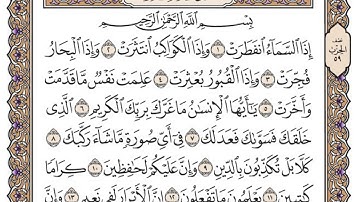 بِسْمِ ٱللَّهِ ٱلرَّحْمَٰنِ ٱلرَّحِيمِ
إِذَا ٱلسَّمَآءُ ٱنفَطَرَتْ ١ وَإِذَا ٱلْكَوَاكِبُ ٱنتَثَرَتْ ٢ وَإِذَا ٱلْبِحَارُ
فُجِّرَتْ ٣ وَإِذَا ٱلْقُبُورُ بُعْثِرَتْ ٤ عَلِمَتْ نَفْسٌ مَّا قَدَّمَتْ
وَأَخَّرَتْ ٥ يَٰٓأَيُّهَا ٱلْإِنسَٰنُ مَا غَرَّكَ بِرَبِّكَ ٱلْكَرِيمِ ٦ ٱلَّذِى
خَلَقَكَ فَسَوَّىٰكَ فَعَدَلَكَ ٧ فِىٓ أَىِّ صُورَةٍ مَّا شَآءَ رَكَّبَكَ ٨
كَلَّا بَلْ تُكَذِّبُونَ بِٱلدِّينِ ٩ وَإِنَّ عَلَيْكُمْ لَحَٰفِظِينَ ١٠ كِرَامًا
كَٰتِبِينَ ١١ يَعْلَمُونَ مَا تَفْعَلُونَ ١٢ إِنَّ ٱلْأَبْرَارَ لَفِى نَعِيمٍ ١٣ وَإِنَّ
الحزب
٥٩